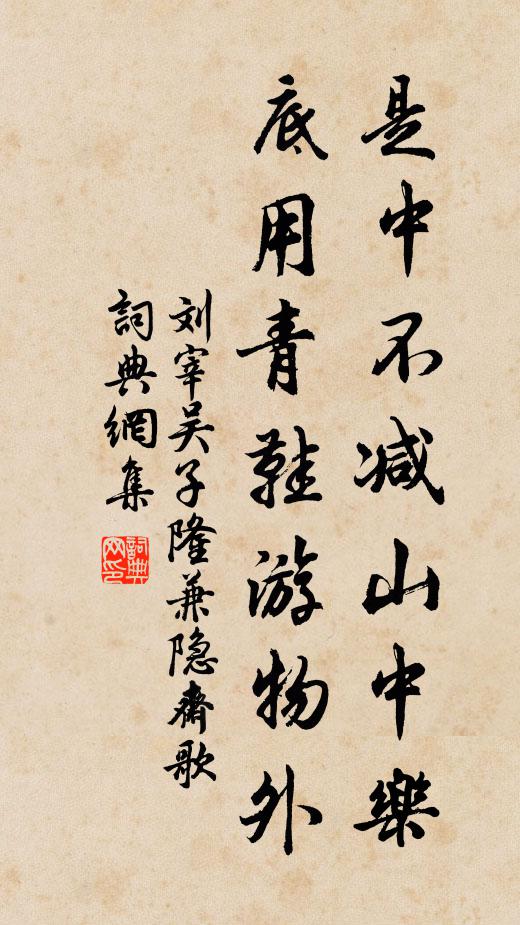 是中不减山中樂
底用青鞋游物外
刘宰吴子隆兼隐齋歌
詞典網集
詞典網印